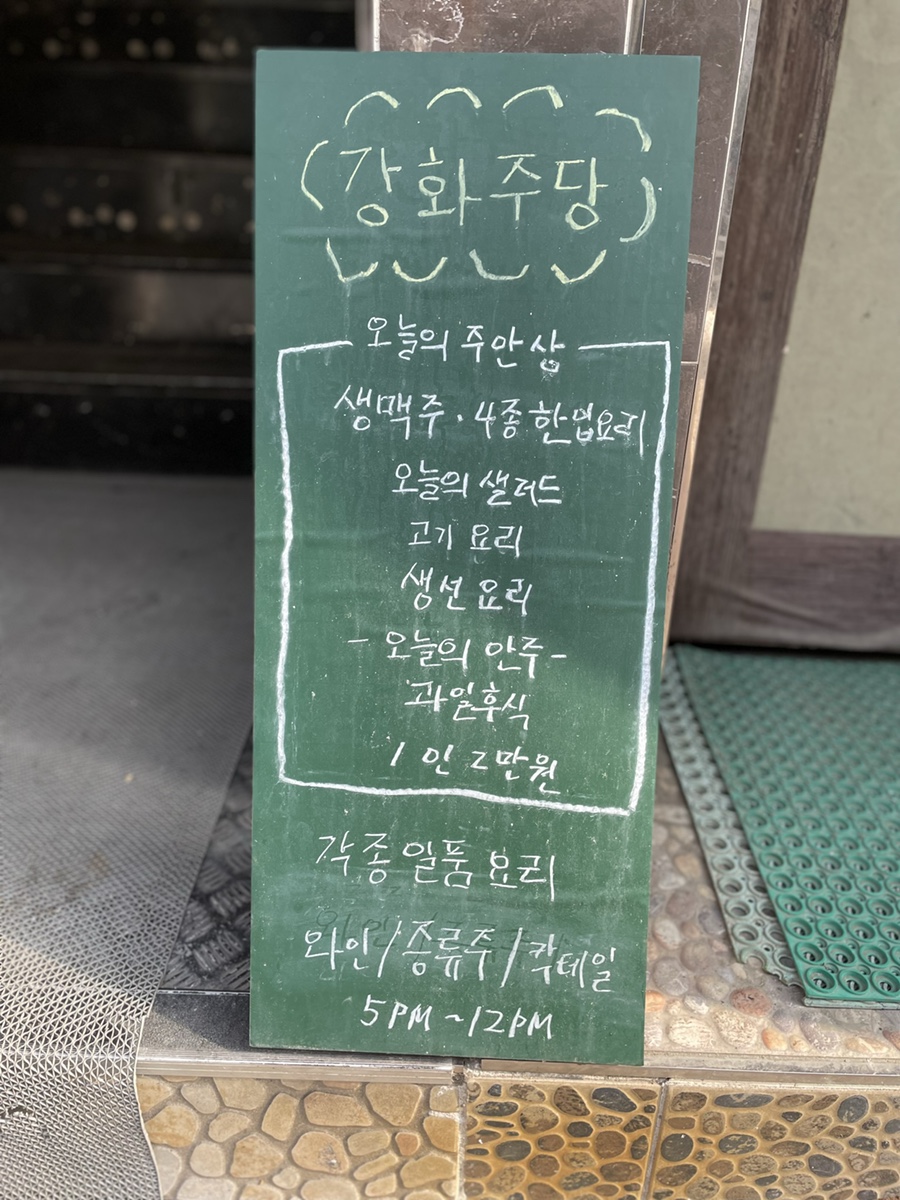 강화주당
오늘의 주안상
생맥주 · 4종 한입요리
오늘의 샐러드
고기 요리
생선 요리
- 오늘의 안주 -
과일후식
1인 2만원
각종 일품 요리
와인/증류주/칵테일
5PM ~12PM